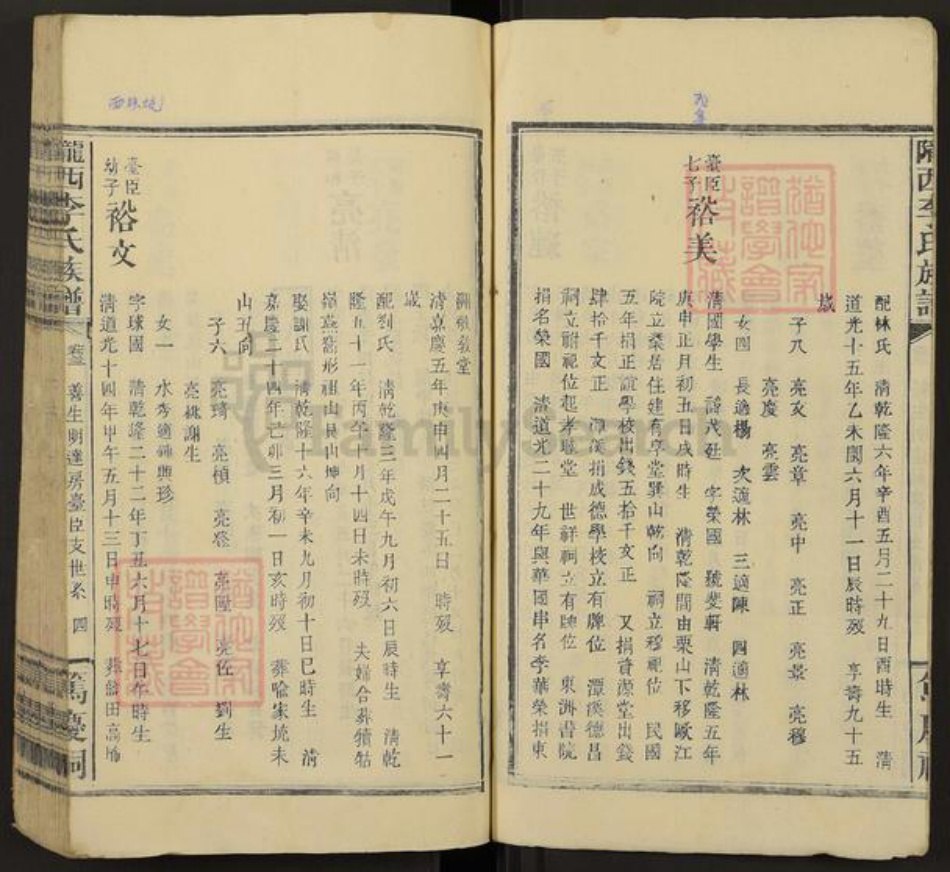 隴西李氏族譜
配林氏　清乾隆六年辛酉五月二十九日酉時生　清
道光十五年乙未閏六月十一日辰時歿　享壽九十五
歲
子八　亮亥　亮章　亮中　亮正　亮景　亮穆
亮慶　亮雲
女四　長適楊　次適林　三適陳　四適林
臺臣
七子
裕美
清國學生　諱茂　字榮國　號斐軒　清乾隆五年
庚申正月初五日戌時生　清乾隆間由栗山下移歐江
院立業居住建有享堂巽山乾向　祠立穆祀位　民國
五年捐正誼學校出錢五拾千文正　又捐資源堂出錢
肆拾千文正　潭溪捐成德學校立有牌位　潭溪德昌
祠立祔祀位起孝聰堂　世祥祠立有牌位　東洲書院
捐名榮國　清道光二十九年與華國串名李華榮捐東
洲敬教堂
清嘉慶五年庚申四月二十五日　時歿　享壽六十一
歲
配劉氏　清乾隆三年戊午九月初六日辰時生　清乾
隆五十一年丙午十月十四日未時歿　夫婦合葬犢牯
嶺燕窩形祖山艮山坤向
娶謝氏　清乾隆十六年辛未九月初十日巳時生　清
嘉慶二十四年己卯三月初一日亥時歿　葬喻家坑未
山丑向
子六　亮琦　亮楨　亮　亮陞　亮佐　劉生
亮姚謝生
女一　水秀適鍾興珍
臺臣
幼子
裕文
字球國　清乾隆二十二年丁丑六月十七日午時生
清道光十四年甲午五月十三日申時歿　葬　田高
隴西李氏族譜　卷　善生明達房臺臣支世系　四　篤慶祠